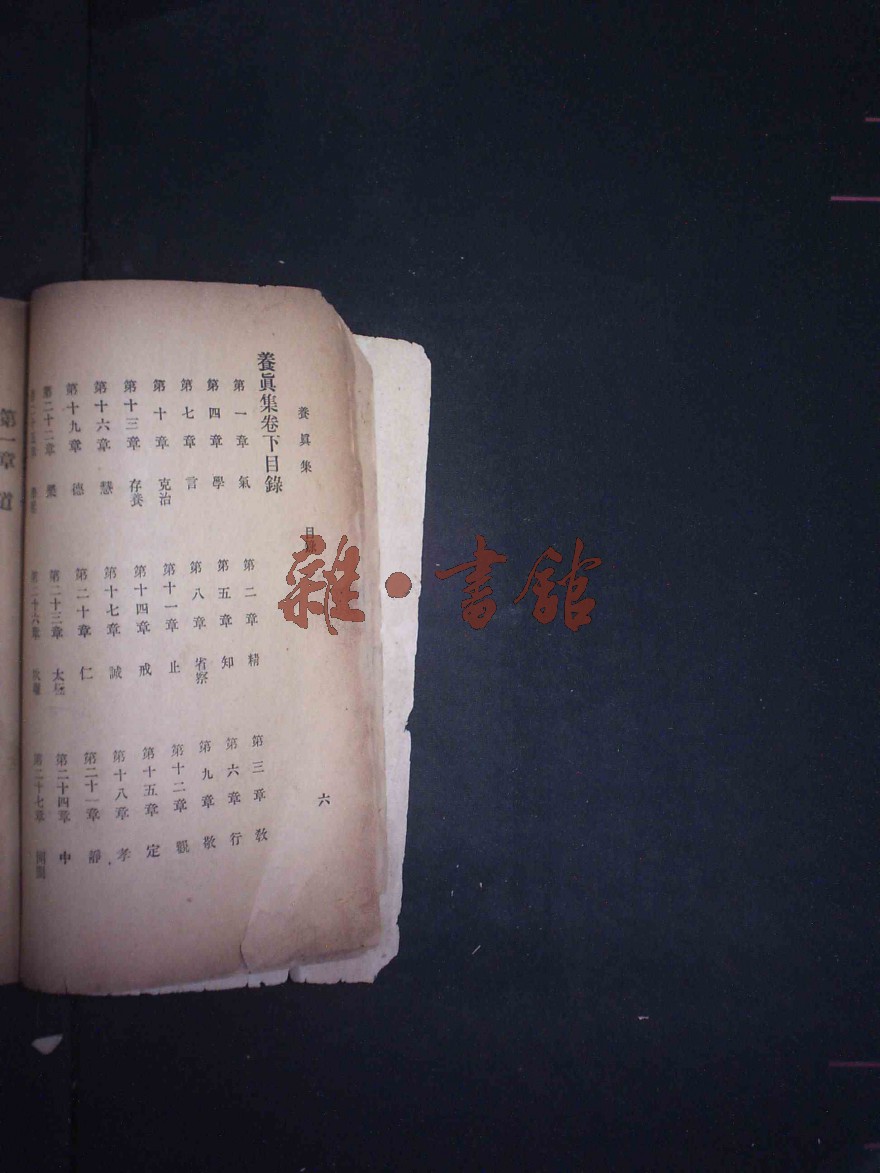 養眞集 目 六
養眞集卷下目錄
第一章 氣 第二章 精 第三章 教
第四章 學 第五章 知 第六章 行
第七章 言 第八章 省察 第九章 敬
第十章 克治 第十一章 止 第十二章 觀
第十三章 存養 第十四章 戒 第十五章 定
第十六章 慧 第十七章 誠 第十八章 孝
第十九章 德 第二十章 仁 第二十一章 靜
第二十二章 樂 第二十三章 太極 第二十四章 中
第二十六章 第二十七章
第一章 道
雜·書館